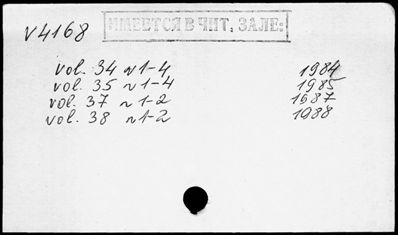 V4168
ИМЕЕТСЯ В ЧИТ. ЗАЛЕ:
vol. 34 n 1-4 1984
vol. 35 n 1-4 1985
vol. 37 n 1-2 1987
vol. 38 n 1-2 1988